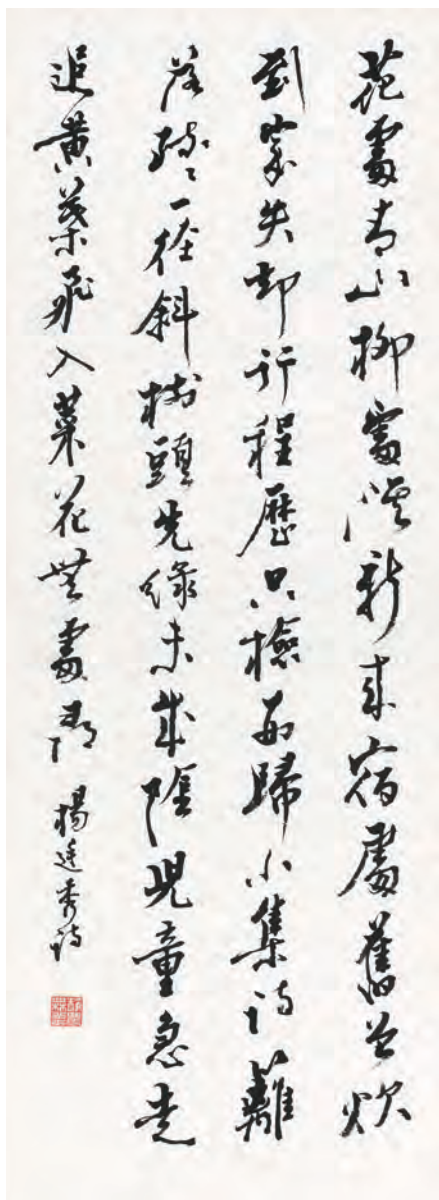 花處青山柳處新來宿處舊曾炊
到家失却行程歷只檢西歸小集詩籬
落疎〻一徑斜樹頭先綠未成陰兒童急走
追黃葉飛入菜花無處尋 楊廷秀詩